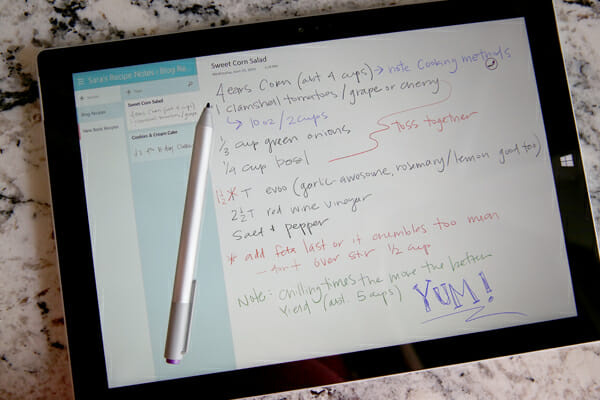 Sara's Recipe Notes › Blog Re...
Sweet Corn Salad
Blog Recipes
New Book Recipes
Sweet Corn Salad
4 ears Corn (abt 4 cups)
Cookies & Cream Cake
Sweet Corn Salad
4 ears Corn (abt 4 cups) → note Cooking methods
1 clamshell tomatoes/grape or cherry
↳ 10 oz / 2 cups
1/3 cup green onions
toss together
1/4 cup basil
1 1/2 * T evoo (garlic awesome, rosemary/lemon good too)
2 1/2 T red wine vinegar
Salt + pepper
* add feta last or it crumbles too much
- don't over stir 1/2 cup
Note: chilling times the more the better
Yield (abt. 5 cups)
YUM!